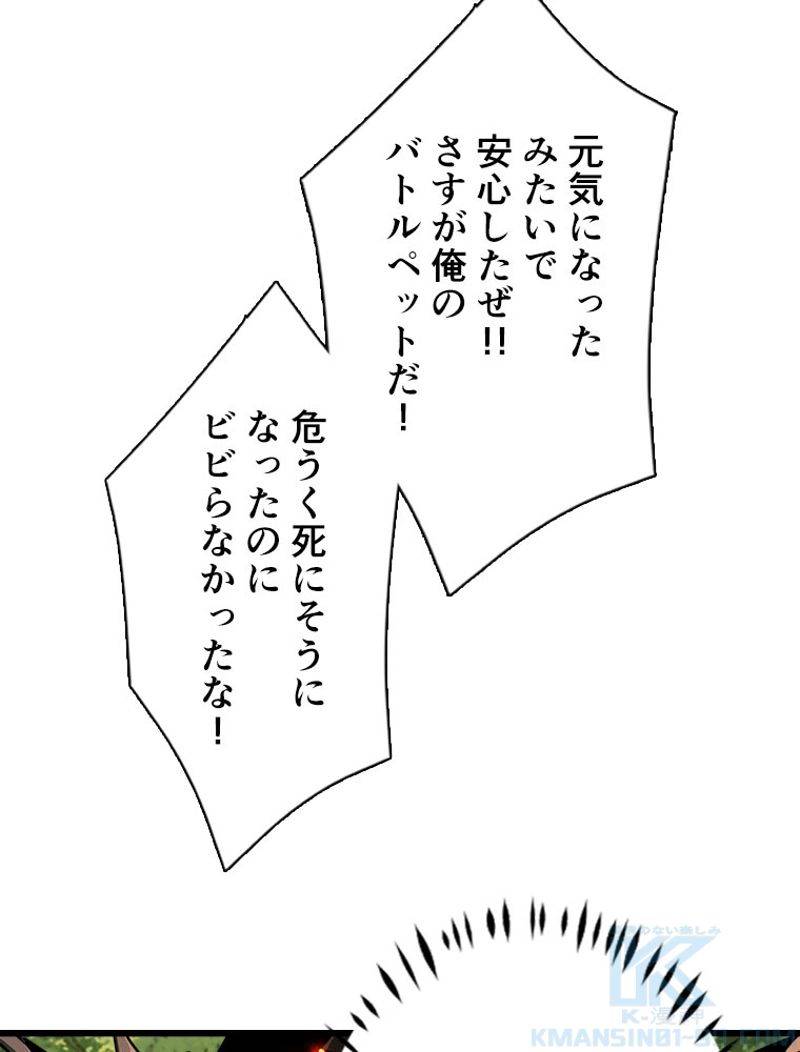 元気になった
みたいで
安心したぜ!!
さすが俺の
バトルペットだ!
危うく死にそうに
なったのに
ビビらなかったな!
K-漫神